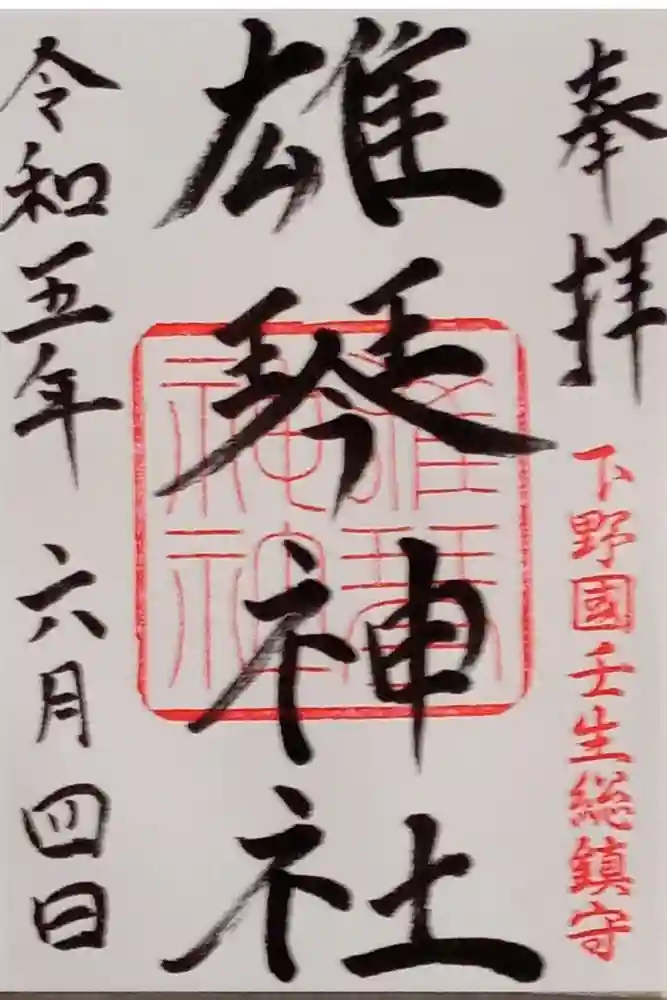 奉拝
下野國壬生総鎮守
雄琴神社
令和五年 六月四日